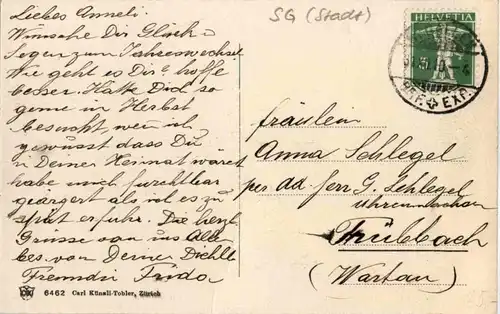 SG (Stadt)
HELVETIA
BRF. EXP.
Liebes Anneli.
Wünsche Dir Glück
Segen zum Jahreswechsel
Wie geht es Dir? hoffe
besser. Hätte Dich so
gerne im Herbst
besucht, wen ich
gewusst dass Du
in Deiner Heimat wärest
habe mich furchtbar
geärgert als ich es zu
spät erfuhr. Die herzl
Grüsse von uns Alle
bes. von Deiner
Freundin Frida
Fräulein
Anna Schlegel
per ad Herr G. Schlegel
Uhrenmacher
Trübbach
(Wartau)
6462 Carl Künzli-Tobler, Zürich